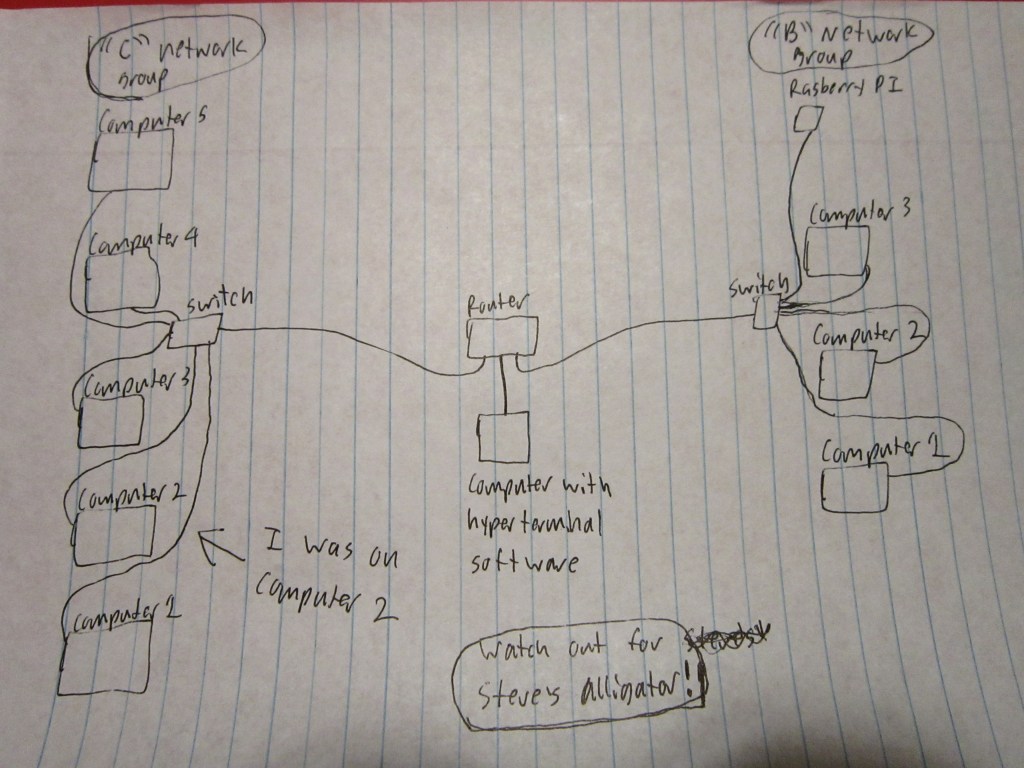 "C" network
group
Computer 5
Computer 4
switch
Computer 3
Computer 2
Computer 1
I was on
Computer 2
Router
Computer with
hyperterminal
software
Watch out for
Steve's alligator!
"B" network
group
Rasberry PI
Computer 3
switch
Computer 2
Computer 1